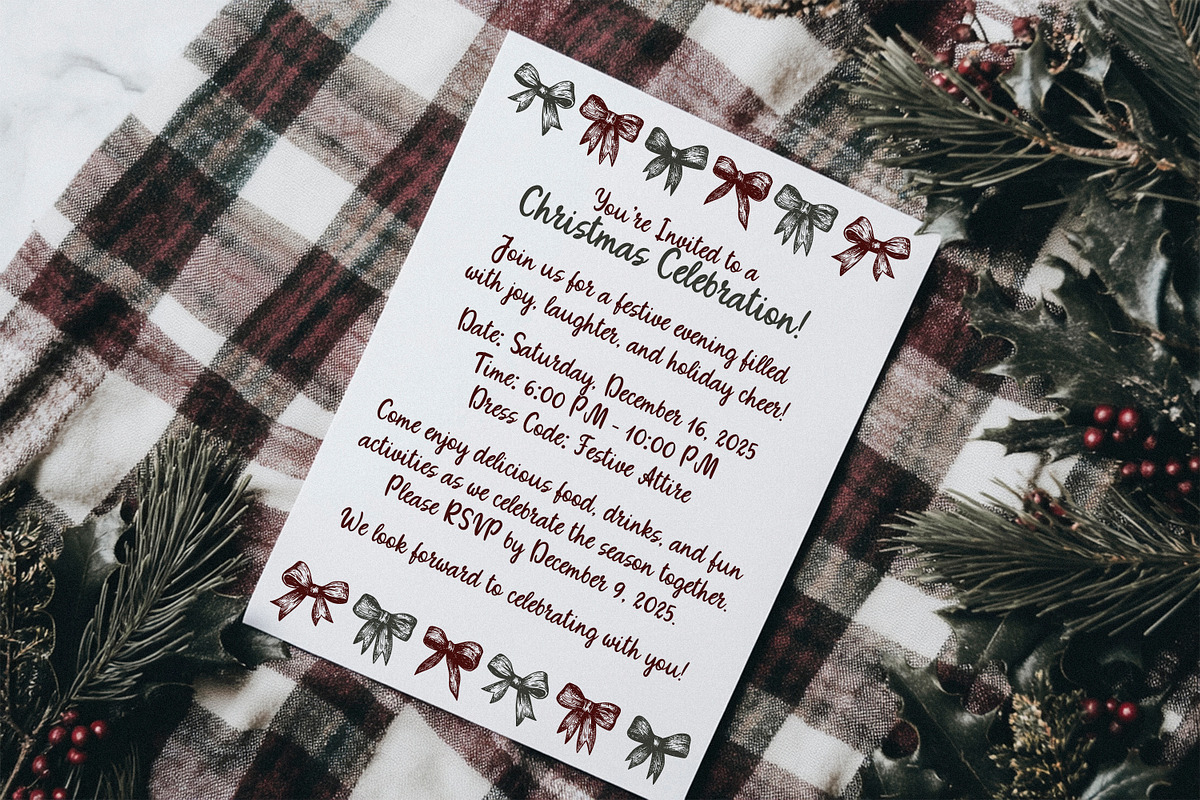 You're Invited to a
Christmas Celebration!
Join us for a festive evening filled
with joy, laughter, and holiday cheer!
Date: Saturday, December 16, 2025
Time: 6:00 PM - 10:00 PM
Dress Code: Festive Attire
Come enjoy delicious food, drinks, and fun
activities as we celebrate the season together.
Please RSVP by December 9, 2025.
We look forward to celebrating with you!